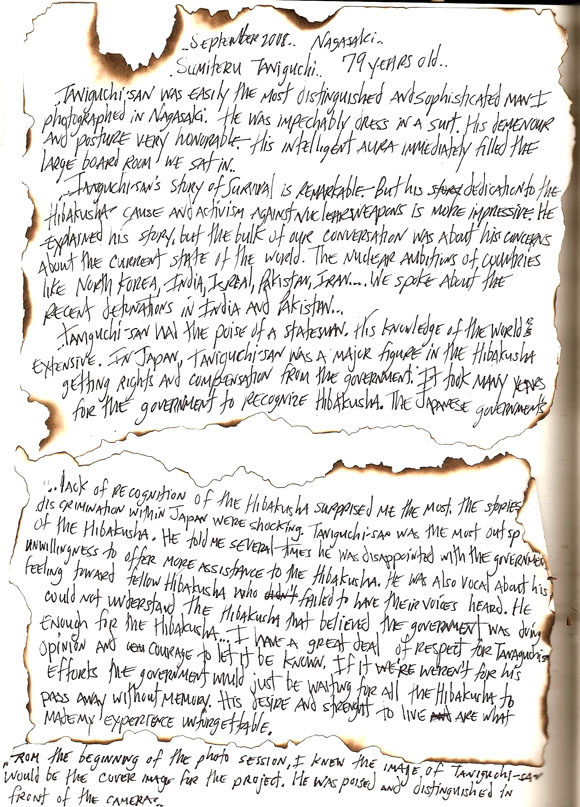 ..September 2008.. Nagasaki..
Sumiteru Taniguchi.. 79 years old..
..Taniguchi-san was easily the most distinguished and sophisticated man I
photographed in Nagasaki. He was impechably dress in a suit. His demenour
and posture very honorable. His intelligent aura immediately filled the
large board room we sat in..
..Taniguchi-san's story of survival is remarkable. But his story dedication to the
Hibakusha cause and activism against nuclear weapons is more impressive. He
explained his story, but the bulk of our conversation was about his concerns
about the current state of the world. The nuclear ambitions of countries
like North Korea, India, Isreal, Pakistan, Iran.... We spoke about the
recent detonations in India and Pakistan...
..Taniguchi-san had the poise of a statesman. His knowledge of the world is
extensive. In Japan, Taniguchi-san was a major figure in the Hibakusha
getting rights and compensation from the government. It took many years
for the government to recognize Hibakusha. The Japanese governments
..lack of recognition of the Hibakusha surprised me the most. The stories
discrimination within Japan were shocking. Taniguchi-san was the most outsp
of the Hibakusha. He told me several times he was disappointed with the governmen
unwillingness to offer more assistance to the Hibakusha. He was also vocal about his
feeling toward fellow Hibakusha who didn't failed to have their voices heard. He
could not understand the Hibakusha that believed the government was doing
enough for the Hibakusha... I have a great deal of respect for Tanaguchi-sa
opinion and courage to let it be known. If it we're weren't for his
efforts the government would just be waiting for all the Hibakusha to
pass away without memory. His desire and strenght to live are what
made my experience unforgettable.
..From the beginning of the photo session, I knew the image of Taniguchi-san
would be the cover image for the project. He was poised and distinguished in
front of the camera..